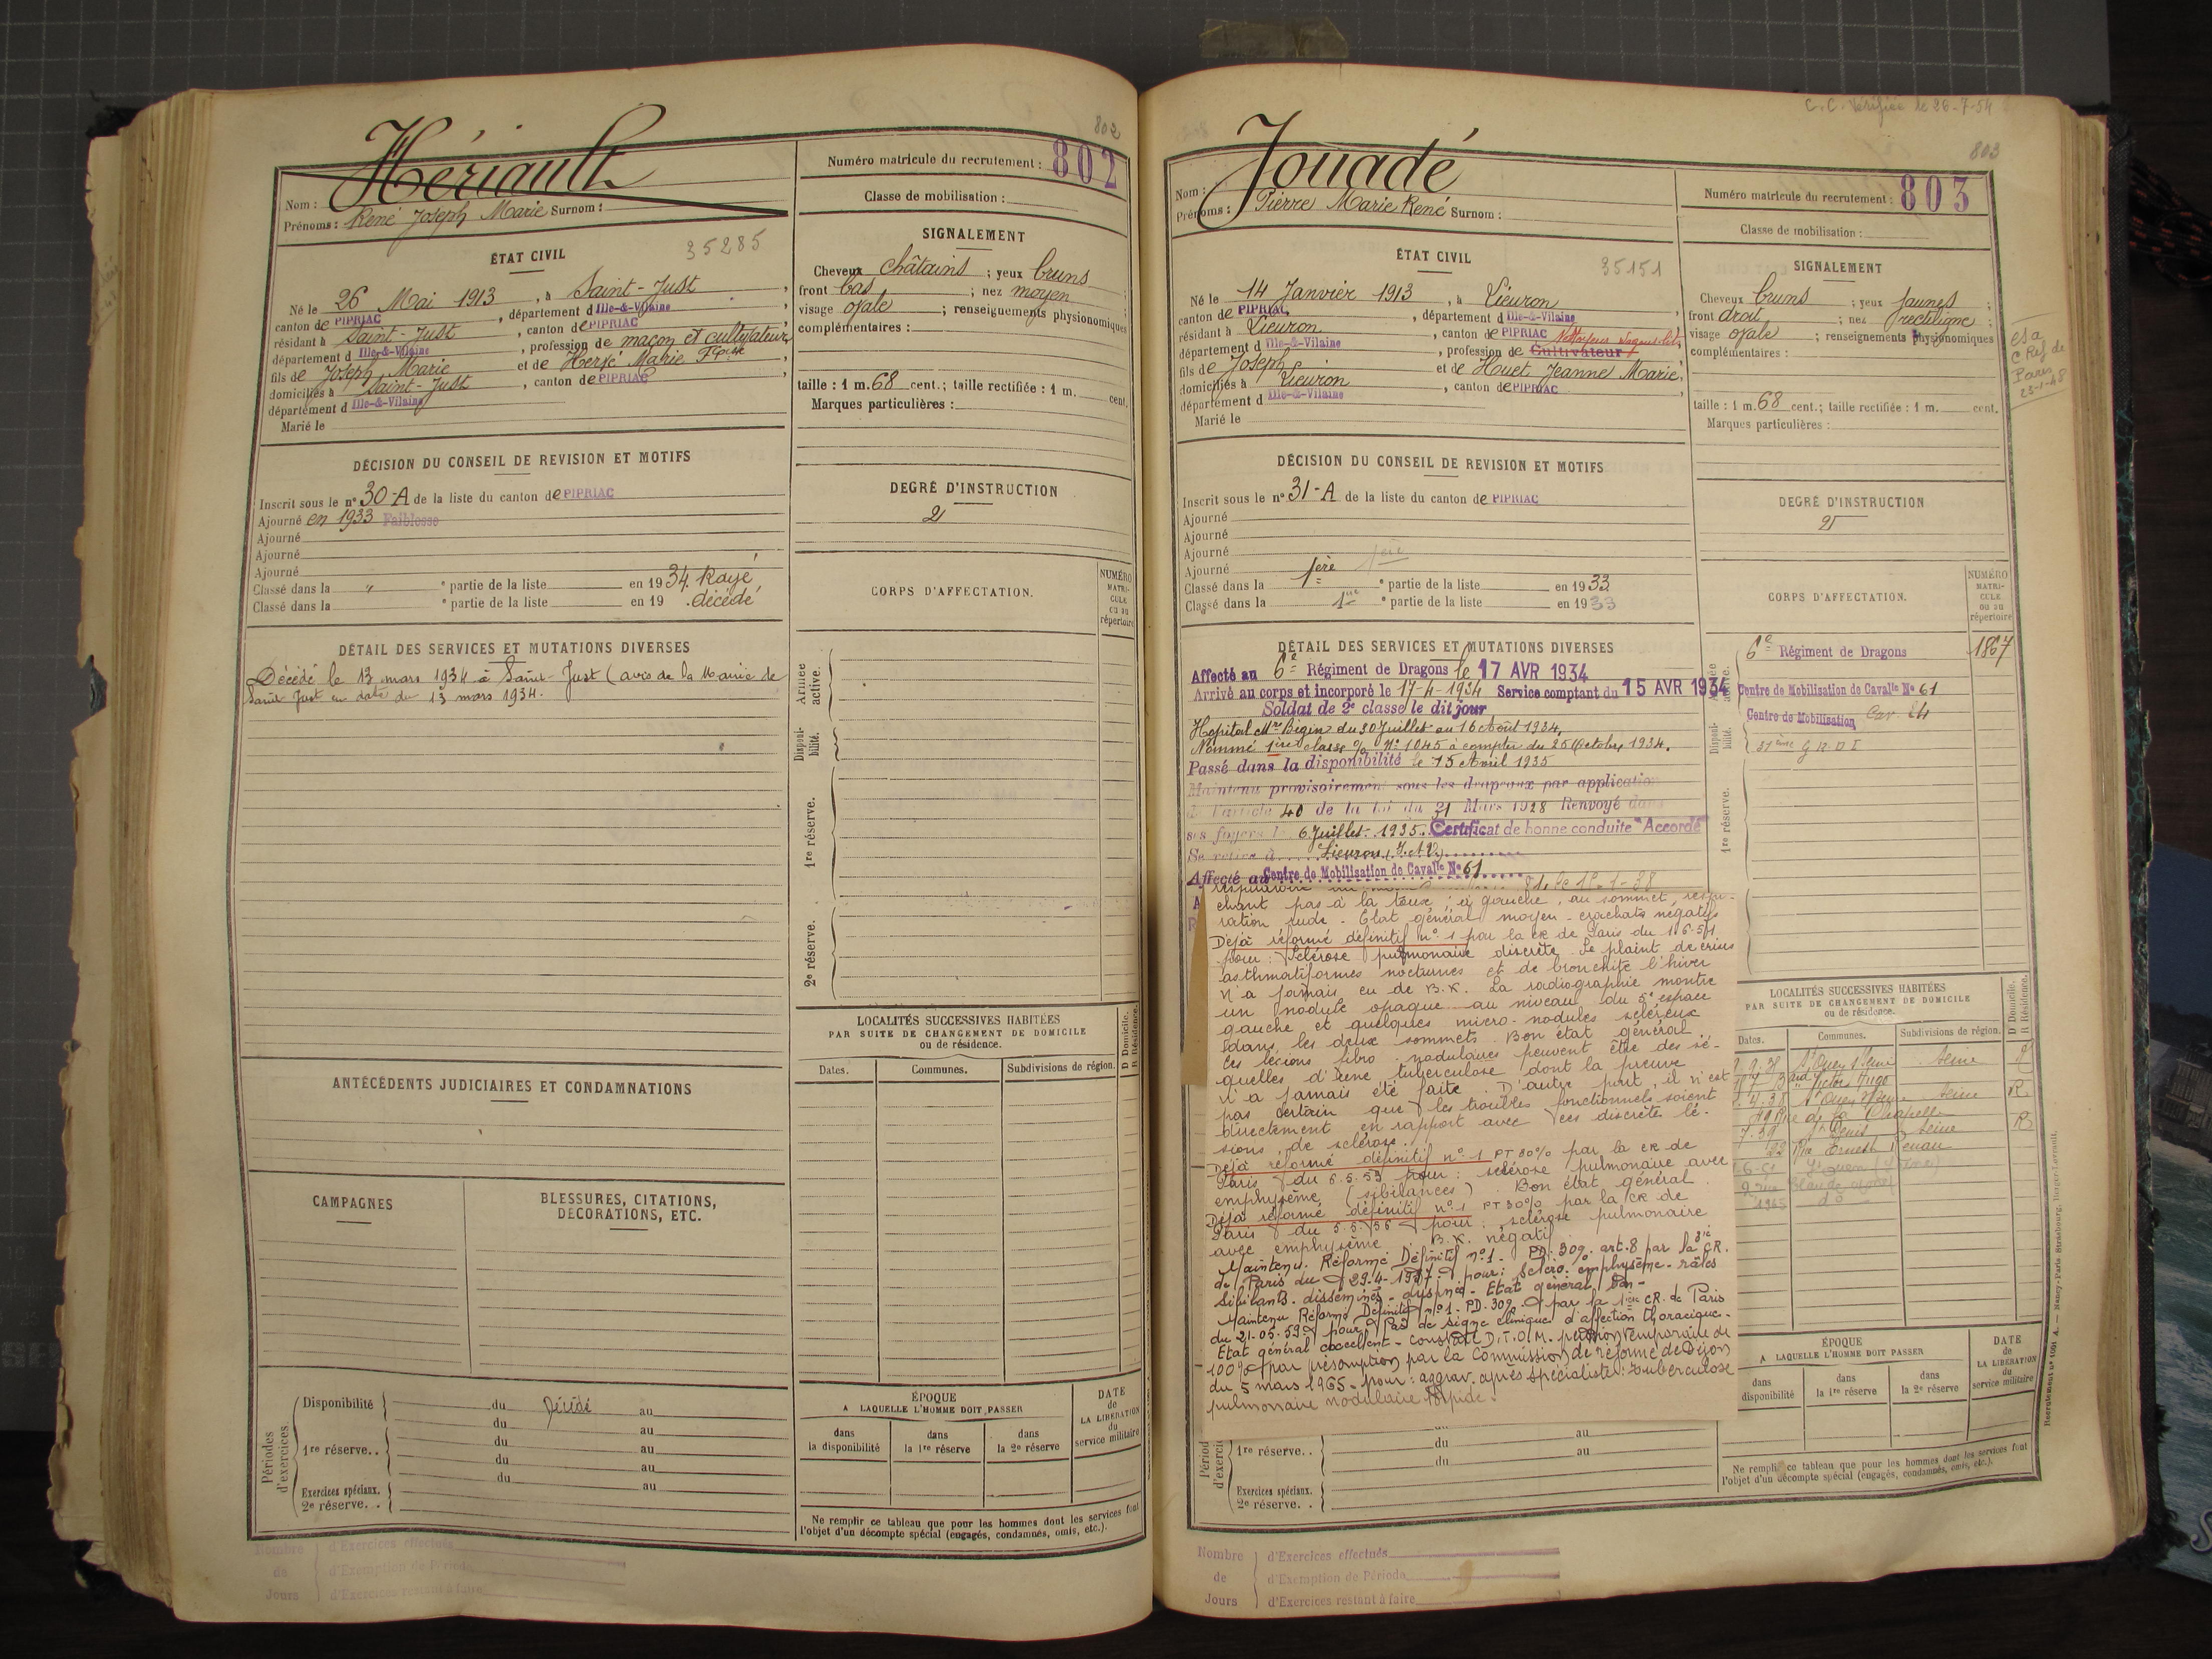 802
Hériault
Nom :
Prénoms : René Joseph Marie Surnom :
Numéro matricule du recrutement : 802
Classe de mobilisation :
ÉTAT CIVIL
35285
Né le 26 Mai 1913, à Saint-Just,
canton de PIPRIAC, département d Ille-&-Vilaine,
résidant à Saint-Just, canton de PIPRIAC,
département d Ille-&-Vilaine, profession de maçon et cultivateur,
fils de Joseph Marie et de Hervé Marie
domiciliés à Saint-Just, canton de PIPRIAC,
département d Ille-&-Vilaine
Marié le
SIGNALEMENT
Cheveux châtains ; yeux bruns ;
front bas ; nez moyen ;
visage ovale ; renseignements physionomiques
complémentaires :
taille : 1 m. 68 cent.; taille rectifiée : 1 m. cent.
Marques particulières :
DÉCISION DU CONSEIL DE REVISION ET MOTIFS
Inscrit sous le n° 30-A de la liste du canton de PIPRIAC
Ajourné en 1933 Faiblesse
Ajourné
Ajourné
Ajourné
Classé dans la " e partie de la liste en 1934 Rayé,
Classé dans la e partie de la liste en 19 décédé
DEGRÉ D'INSTRUCTION
2
CORPS D'AFFECTATION.
NUMÉRO
MATRI-
CULE
OU AU
répertoire
DÉTAIL DES SERVICES ET MUTATIONS DIVERSES
Décédé le 13 mars 1934 à Saint-Just (avis de la Mairie de
Saint-Just en date du 13 mars 1934.
Armée
active.
Disponi-
bilité.
1re réserve.
2e réserve.
LOCALITÉS SUCCESSIVES HABITÉES
PAR SUITE DE CHANGEMENT DE DOMICILE
ou de résidence.
D Domicile.
R Résidence.
Dates.
Communes.
Subdivisions de région.
ANTÉCÉDENTS JUDICIAIRES ET CONDAMNATIONS
CAMPAGNES
BLESSURES, CITATIONS,
DÉCORATIONS, ETC.
Périodes
d'exercices
Disponibilité du Décédé au
du au
1re réserve.. du au
du au
Exercices spéciaux. du au
2e réserve. .
ÉPOQUE
A LAQUELLE L'HOMME DOIT PASSER
DATE
de
LA LIBÉRATION
du
service militaire
dans
la disponibilité
dans
la 1re réserve
dans
la 2e réserve
Ne remplir ce tableau que pour les hommes dont les services font
l'objet d'un décompte spécial (engagés, condamnés, omis, etc.).
Nombre
de
Jours
d'Exercices effectués
d'Exemption de Période
d'Exercices restant à faire
C.C. Vérifiée le 26-7-54
803
Jouadé
Nom :
Prénoms : Pierre Marie René Surnom :
Numéro matricule du recrutement : 803
Classe de mobilisation :
ÉTAT CIVIL
35151
Né le 14 Janvier 1913, à Lieuron
canton de PIPRIAC, département d Ille-&-Vilaine,
résidant à Lieuron, canton de PIPRIAC
département d Ille-&-Vilaine, profession de Cultivateur
fils de Joseph et de Huet Jeanne Marie,
domiciliés à Lieuron, canton de PIPRIAC,
département d Ille-&-Vilaine
Marié le
SIGNALEMENT
Cheveux bruns ; yeux jaunes ;
front droit ; nez rectiligne ;
visage ovale ; renseignements physionomiques
complémentaires :
taille : 1 m. 68 cent.; taille rectifiée : 1 m. cent.
Marques particulières :
C Ref de
Paris
23-1-48
DÉCISION DU CONSEIL DE REVISION ET MOTIFS
Inscrit sous le n° 31-A de la liste du canton de PIPRIAC
Ajourné
Ajourné
Ajourné
Ajourné
Classé dans la 1ère e partie de la liste en 1933
Classé dans la 1re e partie de la liste en 1933
DEGRÉ D'INSTRUCTION
2
CORPS D'AFFECTATION.
NUMÉRO
MATRI-
CULE
OU AU
répertoire
6e Régiment de Dragons 1867
Centre de Mobilisation de Cavalle No 61
Centre de Mobilisation Cav. 24
31ème G R D I
DÉTAIL DES SERVICES ET MUTATIONS DIVERSES
Affecté au 6e Régiment de Dragons le 17 AVR 1934
Arrivé au corps et incorporé le 17-4-1934 Service comptant du 15 AVR 1934
Soldat de 2e classe le dit jour
Hôpital Mre Bégin du 30 Juillet au 16 Août 1934.
Nommé 1ère classe O/ No 1045 à compter du 25 Octobre 1934.
Passé dans la disponibilité le 15 Avril 1935
Maintenu provisoirement sous les drapeaux par application
de l'article 40 de la loi du 31 Mars 1928 Renvoyé dans
ses foyers le 6 Juillet 1935. Certificat de bonne conduite "Accordé"
Se retire à Lieuron (I. et V.)
Affecté au Centre de Mobilisation de Cavalle No 61
chant pas à la toux ; à gauche, au sommet, respi-
ration rude. Etat général moyen - crachats négatifs
Déjà réformé définitif n° 1 par la CR de Paris du 1.6.51
pour : Sclérose pulmonaire discrète. Se plaint de crises
asthmatiformes nocturnes et de bronchite l'hiver
n'a jamais eu de B.K. La radiographie montre
un nodule opaque au niveau du 5e espace
gauche et quelques micro-nodules scléreux
dans les deux sommets. Bon état général.
Ces lésions fibro-nodulaires peuvent être des sé-
quelles d'une tuberculose dont la preuve
n'a jamais été faite. D'autre part, il n'est
pas certain que les troubles fonctionnels soient
directement en rapport avec ces discrètes lé-
sions de sclérose.
Déjà réformé définitif n° 1 PT 30% par la CR de
Paris du 6.5.53 pour : sclérose pulmonaire avec
emphysème (sibilances) Bon état général.
Déjà réformé définitif n° 1 PT 30% par la CR de
Paris du 5.5.56 pour : sclérose pulmonaire
avec emphysème. B.K. négatif.
Maintenu. Réformé Définitif n° 1. PD. 30%. art. 8 par la 3ie CR.
de Paris du 29-4-1957 pour : Scléro-emphysème - râles
Sibilants. disséminés - dyspnée - Etat général bon -
Maintenu Réformé Définitif n° 1. PD. 30% par la 1ère CR. de Paris
du 21-05-59 pour Pas de signe clinique d'affection thoracique.
Etat général excellent - pension temporaire de
100% par présomption par la Commission de réforme de Dijon
du 5 mars 1965 - pour : aggrav. après spécialiste : tuberculose
pulmonaire nodulaire torpide.
1re réserve.
LOCALITÉS SUCCESSIVES HABITÉES
PAR SUITE DE CHANGEMENT DE DOMICILE
ou de résidence.
D Domicile.
R Résidence.
Dates.
Communes.
Subdivisions de région.
St Ouen s/Seine Seine
Bard Victor Hugo
4.38 St Ouen Seine R.
49 Rue de la Chapelle
7.39 St Denis Seine R
22 Rue Ernest Renan
St Ouen (Seine)
ÉPOQUE
A LAQUELLE L'HOMME DOIT PASSER
DATE
de
LA LIBÉRATION
du
service militaire
dans
disponibilité
dans
la 1re réserve
dans
la 2e réserve
du au
1re réserve. . du au
du
Exercices spéciaux.
2e réserve. .
Ne remplir ce tableau que pour les hommes dont les services font
l'objet d'un décompte spécial (engagés, condamnés, omis, etc.).
Nombre
de
Jours
d'Exercices effectués
d'Exemption de Période
d'Exercices restant à faire